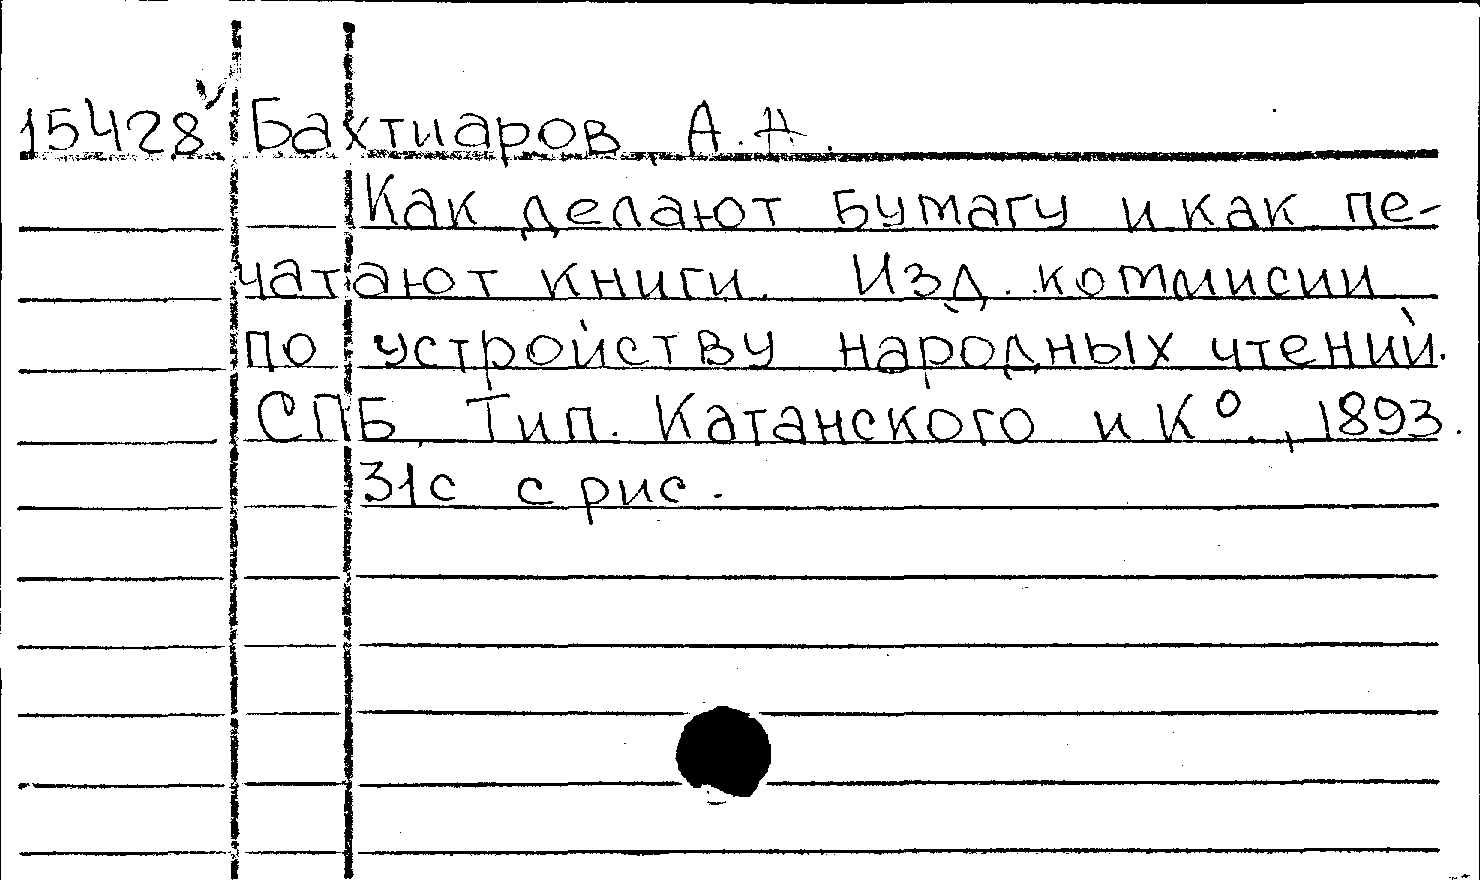 15428 Бахтиаров А.А.
Как делают бумагу и как пе-
чатают книги. Изд. коммисии
по устройству народных чтений.
СПБ, Тип. Катанского и К°., 1893.
31с с рис.